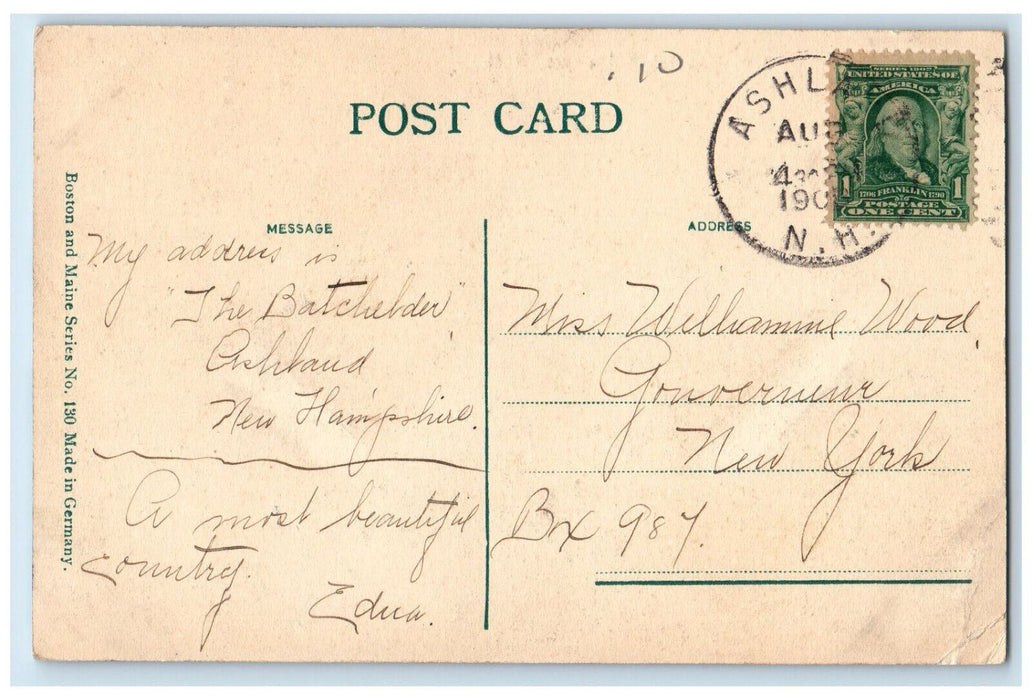 POST CARD
ASHLA
AUG
430
190
N.H.
SERIES 1902
UNITED STATES OF
AMERICA
1 1706 FRANKLIN 1790 1
POSTAGE
ONE CENT
.10
Boston and Maine Series No. 130 Made in Germany.
MESSAGE
My address is
"The Batchelder"
Ashland
New Hampshire.
A most beautiful
country.
Edna.
ADDRESS
Miss Welhammie Wood,
Gouverneur
New York
Bx 987.